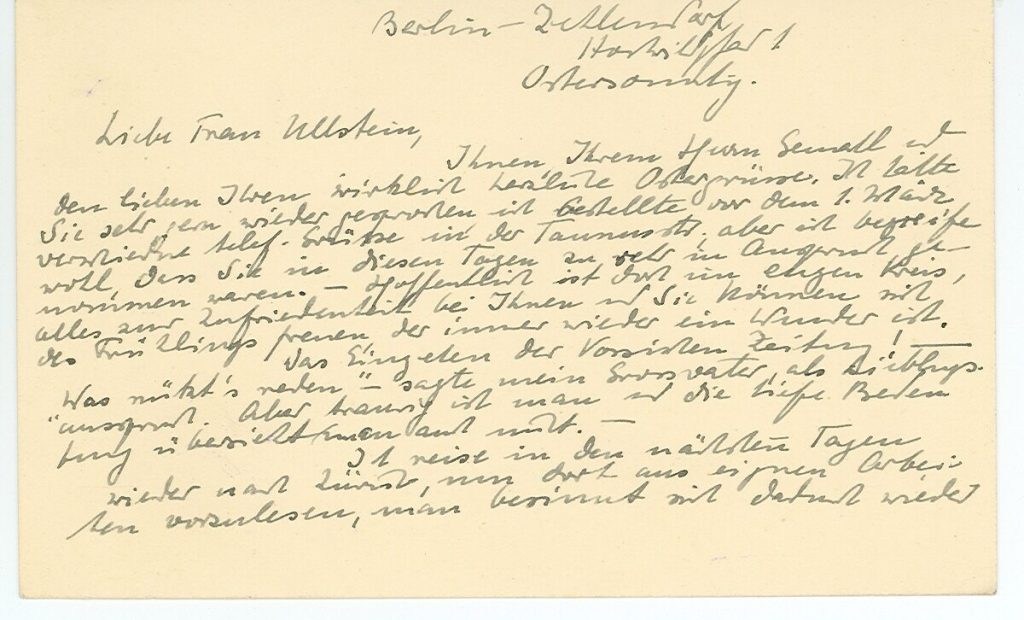 Berlin - Zehlendorf
1
Ostersonntag.
Liebe Frau Ullstein,
Ihnen Ihrem Herrn Gemahl ud
den lieben Ihren wirklich herzliche Ostergrüsse. Ich hätte
Sie sehr gern wieder gesprochen ich bestellte vor dem 1. März
verschiedne telef. Grüsse in der Taunusstr. aber ich begreife
wohl, dass Sie in diesen Tagen zu sehr in Anspruch ge-
nommen waren. — Hoffentlich ist dort im engen Kreis,
alles zur Zufriedenheit bei Ihnen ud Sie können sich
des Frühlings freuen, der immer wieder ein Wunder ist.
Das Eingehen der Vossischen Zeitung! —
"Was nützt's reden" — sagte mein Grossvater, als Lieblings-
ausspruch. Aber traurig ist man ud die tiefe Bedeu
tung übersieht man auch nicht. —
Ich reise in den nächsten Tagen
wieder nach Zürich, um dort aus eignen Arbei-
ten vorzulesen, man besinnt sich dadurch wieder